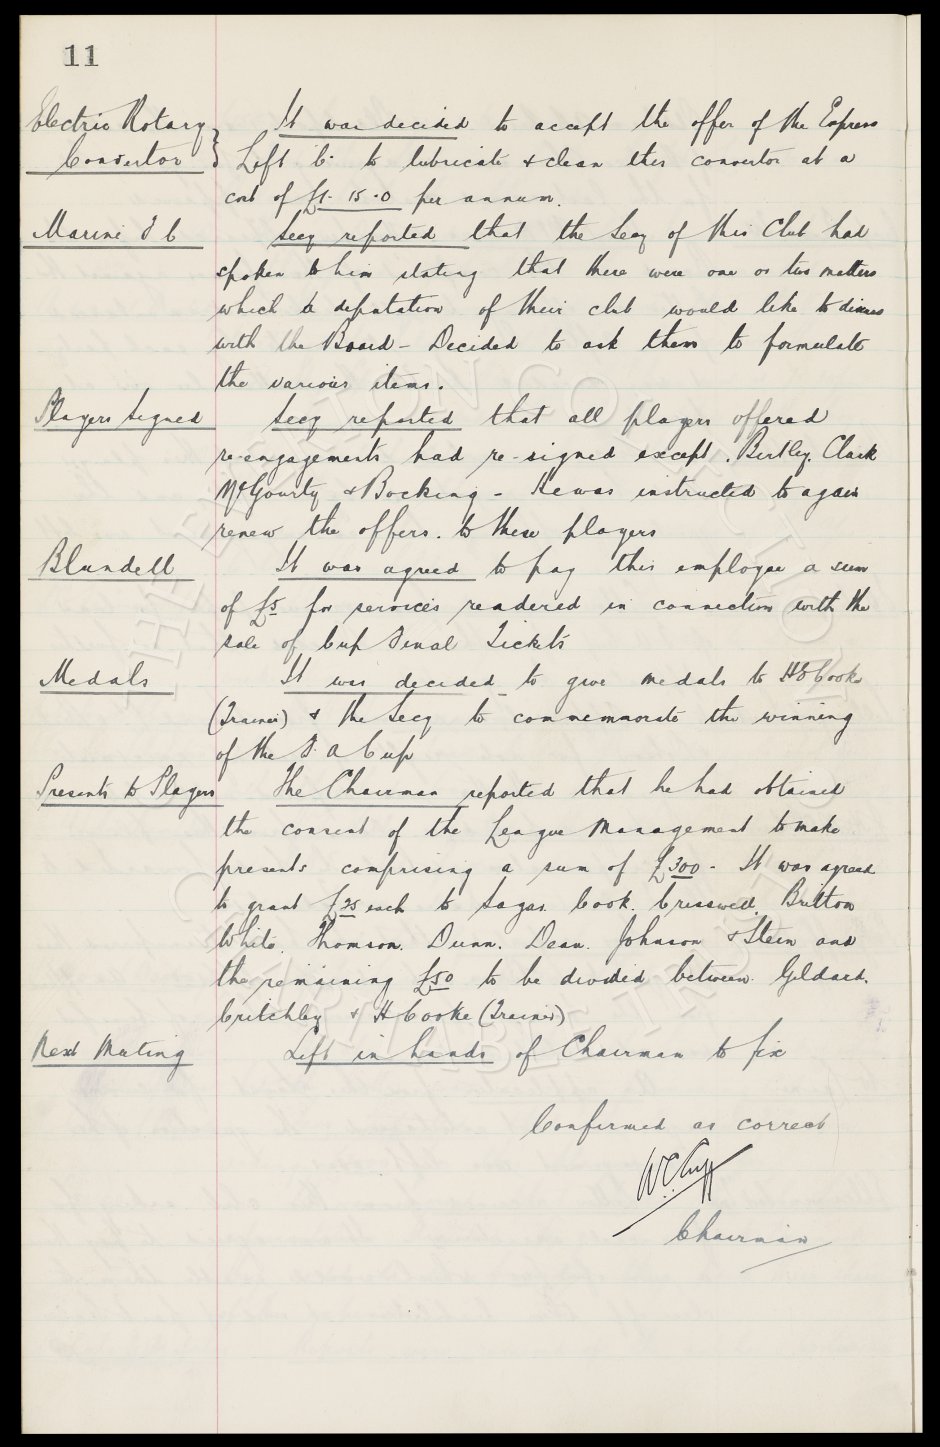 11
Electric Rotary It was decided to accept the offer of the Express
Convertor } Lift Co. to lubricate & clean this convertor at a
cost of £1-15-0 per annum.
Marine F C Secy reported that the Secy of this Club had
spoken to him stating that there were one or two matters
which a deputation of their club would like to discuss
with the Board - Decided to ask them to formulate
the various items.
Players Signed Secy reported that all players offered
re-engagements had re-signed except. Bentley. Clark
McGourty & Bocking - He was instructed to again
renew the offers. to these players
Blundell It was agreed to pay this employee a sum
of £5 for services rendered in connection with the
sale of Cup Final Tickets
Medals It was decided to give medals to H E Cooke
(Trainer) & the Secy to commemorate the winning
of the F. A Cup
Presents to Players The Chairman reported that he had obtained
the consent of the League Management to make
presents comprising a sum of £300 - It was agreed
to grant £25 each to Sagar. Cook. Cresswell. Britton
White. Thomson. Dunn. Dean. Johnson & Stein and
the remaining £50 to be divided between Geldard.
Critchley & H Cooke (Trainer)
Next Meeting Left in hands of Chairman to fix
Confirmed as correct
W.C. Cuff
Chairman